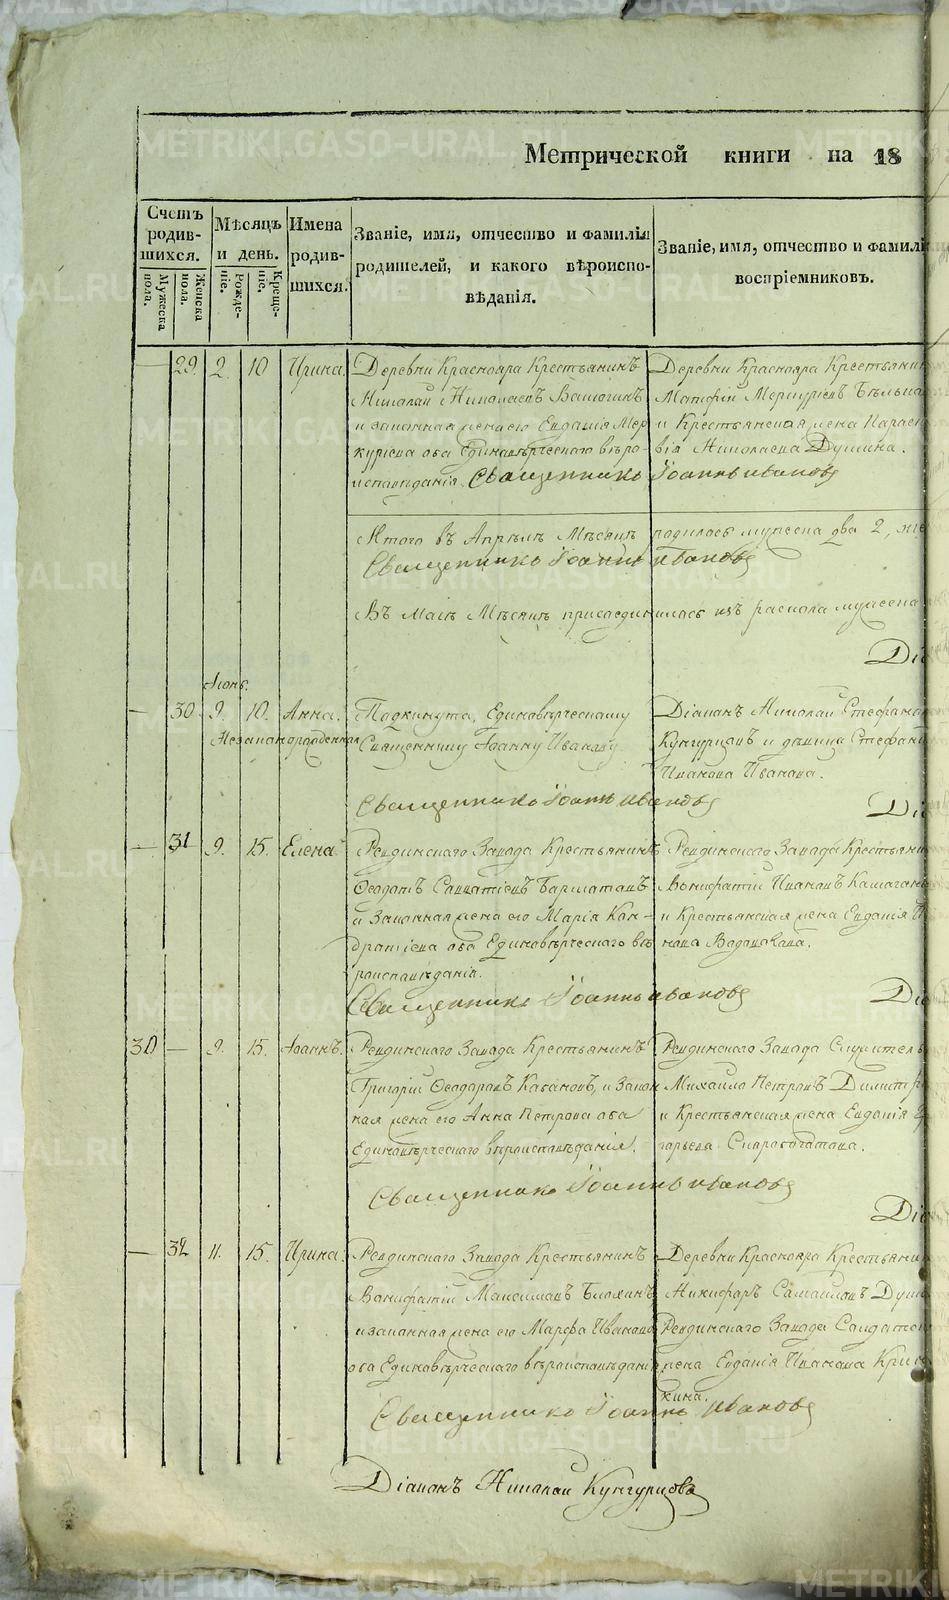 Метрической книги на 18
Счетъ родившихся.
Мужеска пола.
Женска пола.
Мѣсяцъ и день.
Рожденіе.
Крещеніе.
Имена родившихся.
Званіе, имя, отчество и фамилія
родителей, и какого вѣроиспо-
вѣданія.
Званіе, имя, отчество и фамилі
воспріемниковъ.
— 29. 2. 10 Ирина.
Деревни Краснояра Крестьянинъ
Николай Николаевъ
и законная жена его Евдокія Мер
куріева оба Единовѣрческаго вѣро
исповѣданія. Священникъ Іоаннъ Ивановъ
Деревни Краснояра Крестьянин
Матфій Меркуріевъ
и Крестьянская жена Параске
вія Николаева Душина.
Итого въ Апрѣлѣ Мѣсяцѣ родилось мужеска два 2, же
Священникъ Іоаннъ Ивановъ
Въ Маіѣ Мѣсяцѣ присоединилась изъ раскола мужеска
Діа
Іюнь.
— 30 9. 10. Анна.
Незаконорожденная
Подкинута, Единовѣрческому
Священнику Іоанну Иванову
Священникъ Іоаннъ Ивановъ
Діаконъ Николай Стефано
Кунгурцовъ и дѣвица Стефани
Иванова Иванова.
Діа
— 31 9. 15. Елена.
Ревдинскаго Завода Крестьянинъ
Ѳеодотъ Савватіевъ
и Законная жена его Марія Кон-
дратіева оба Единовѣрческаго вѣ
роисповѣданія.
Священникъ Іоаннъ Ивановъ
Ревдинскаго Завода Крестьяни
Вонифатій Ивановъ
и Крестьянская жена Евдокія И
нова
Діа
30 — 9. 15. Іоаннъ.
Ревдинскаго Завода Крестьянинъ
Григорій Ѳеодоровъ Кабановъ, и Закон
ная жена его Анна Петрова оба
Единовѣрческаго вѣроисповѣданія.
Священникъ Іоаннъ Ивановъ
Ревдинскаго Завода Служитель
Михайло Петровъ
и Крестьянская жена Евдокія Гр
горьева
Діа
— 32 11. 15. Ирина.
Ревдинскаго Завода Крестьянинъ
Вонифатій Максимовъ
и законная жена его Марфа Иванова
оба Единовѣрческаго вѣроисповѣданія
Священникъ Іоаннъ Ивановъ
Деревни Краснояра Крестьянин
Никифоръ Самойловъ Душ
Ревдинскаго Завода Солдатск
жена Евдокія Иванова
кина.
Діаконъ Николай Кунгурцовъ
METRIKI.GASO-URAL.RU